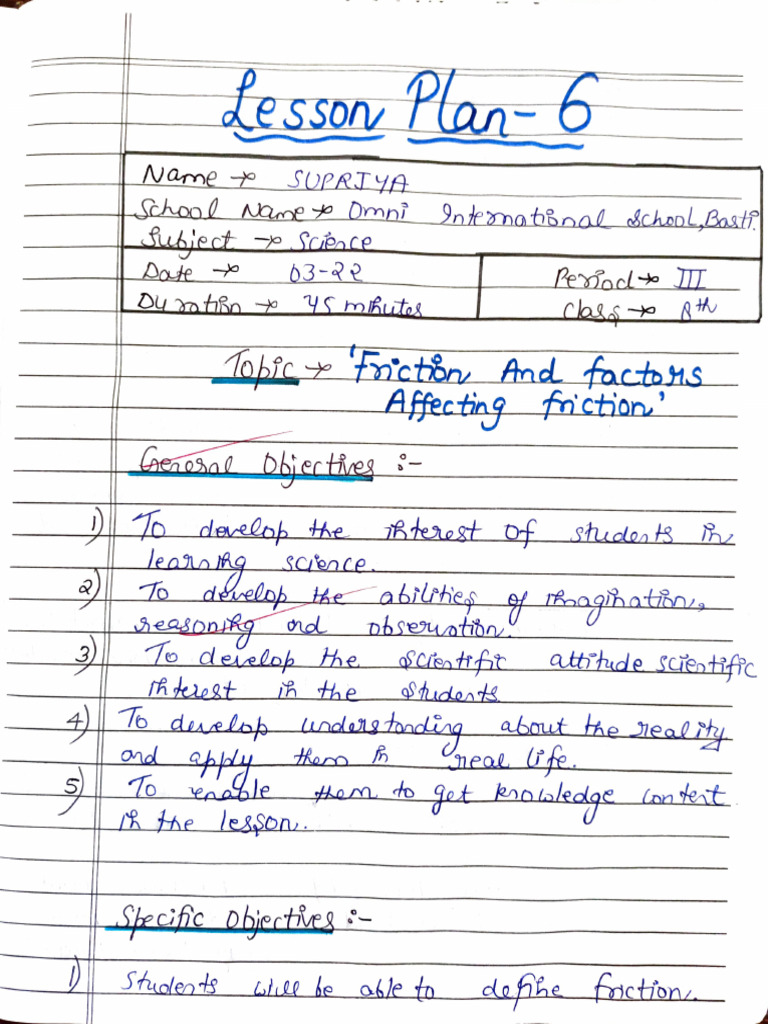 Lesson Plan - 6
Name → SUPRIYA
School Name → Omni International School, Basti.
Subject → Science
Date → 03-22
Period → III
Duration → 45 minutes
Class → 8th
Topic → 'Friction And factors
Affecting friction'
General Objectives :-
1) To develop the interest of students in
learning science.
2) To develop the abilities of imagination,
reasoning and observation.
3) To develop the scientific attitude scientific
interest in the students.
4) To develop understanding about the reality
and apply them in real life.
5) To enable them to get knowledge content
in the lesson.
Specific Objectives :-
1) Students will be able to define friction.